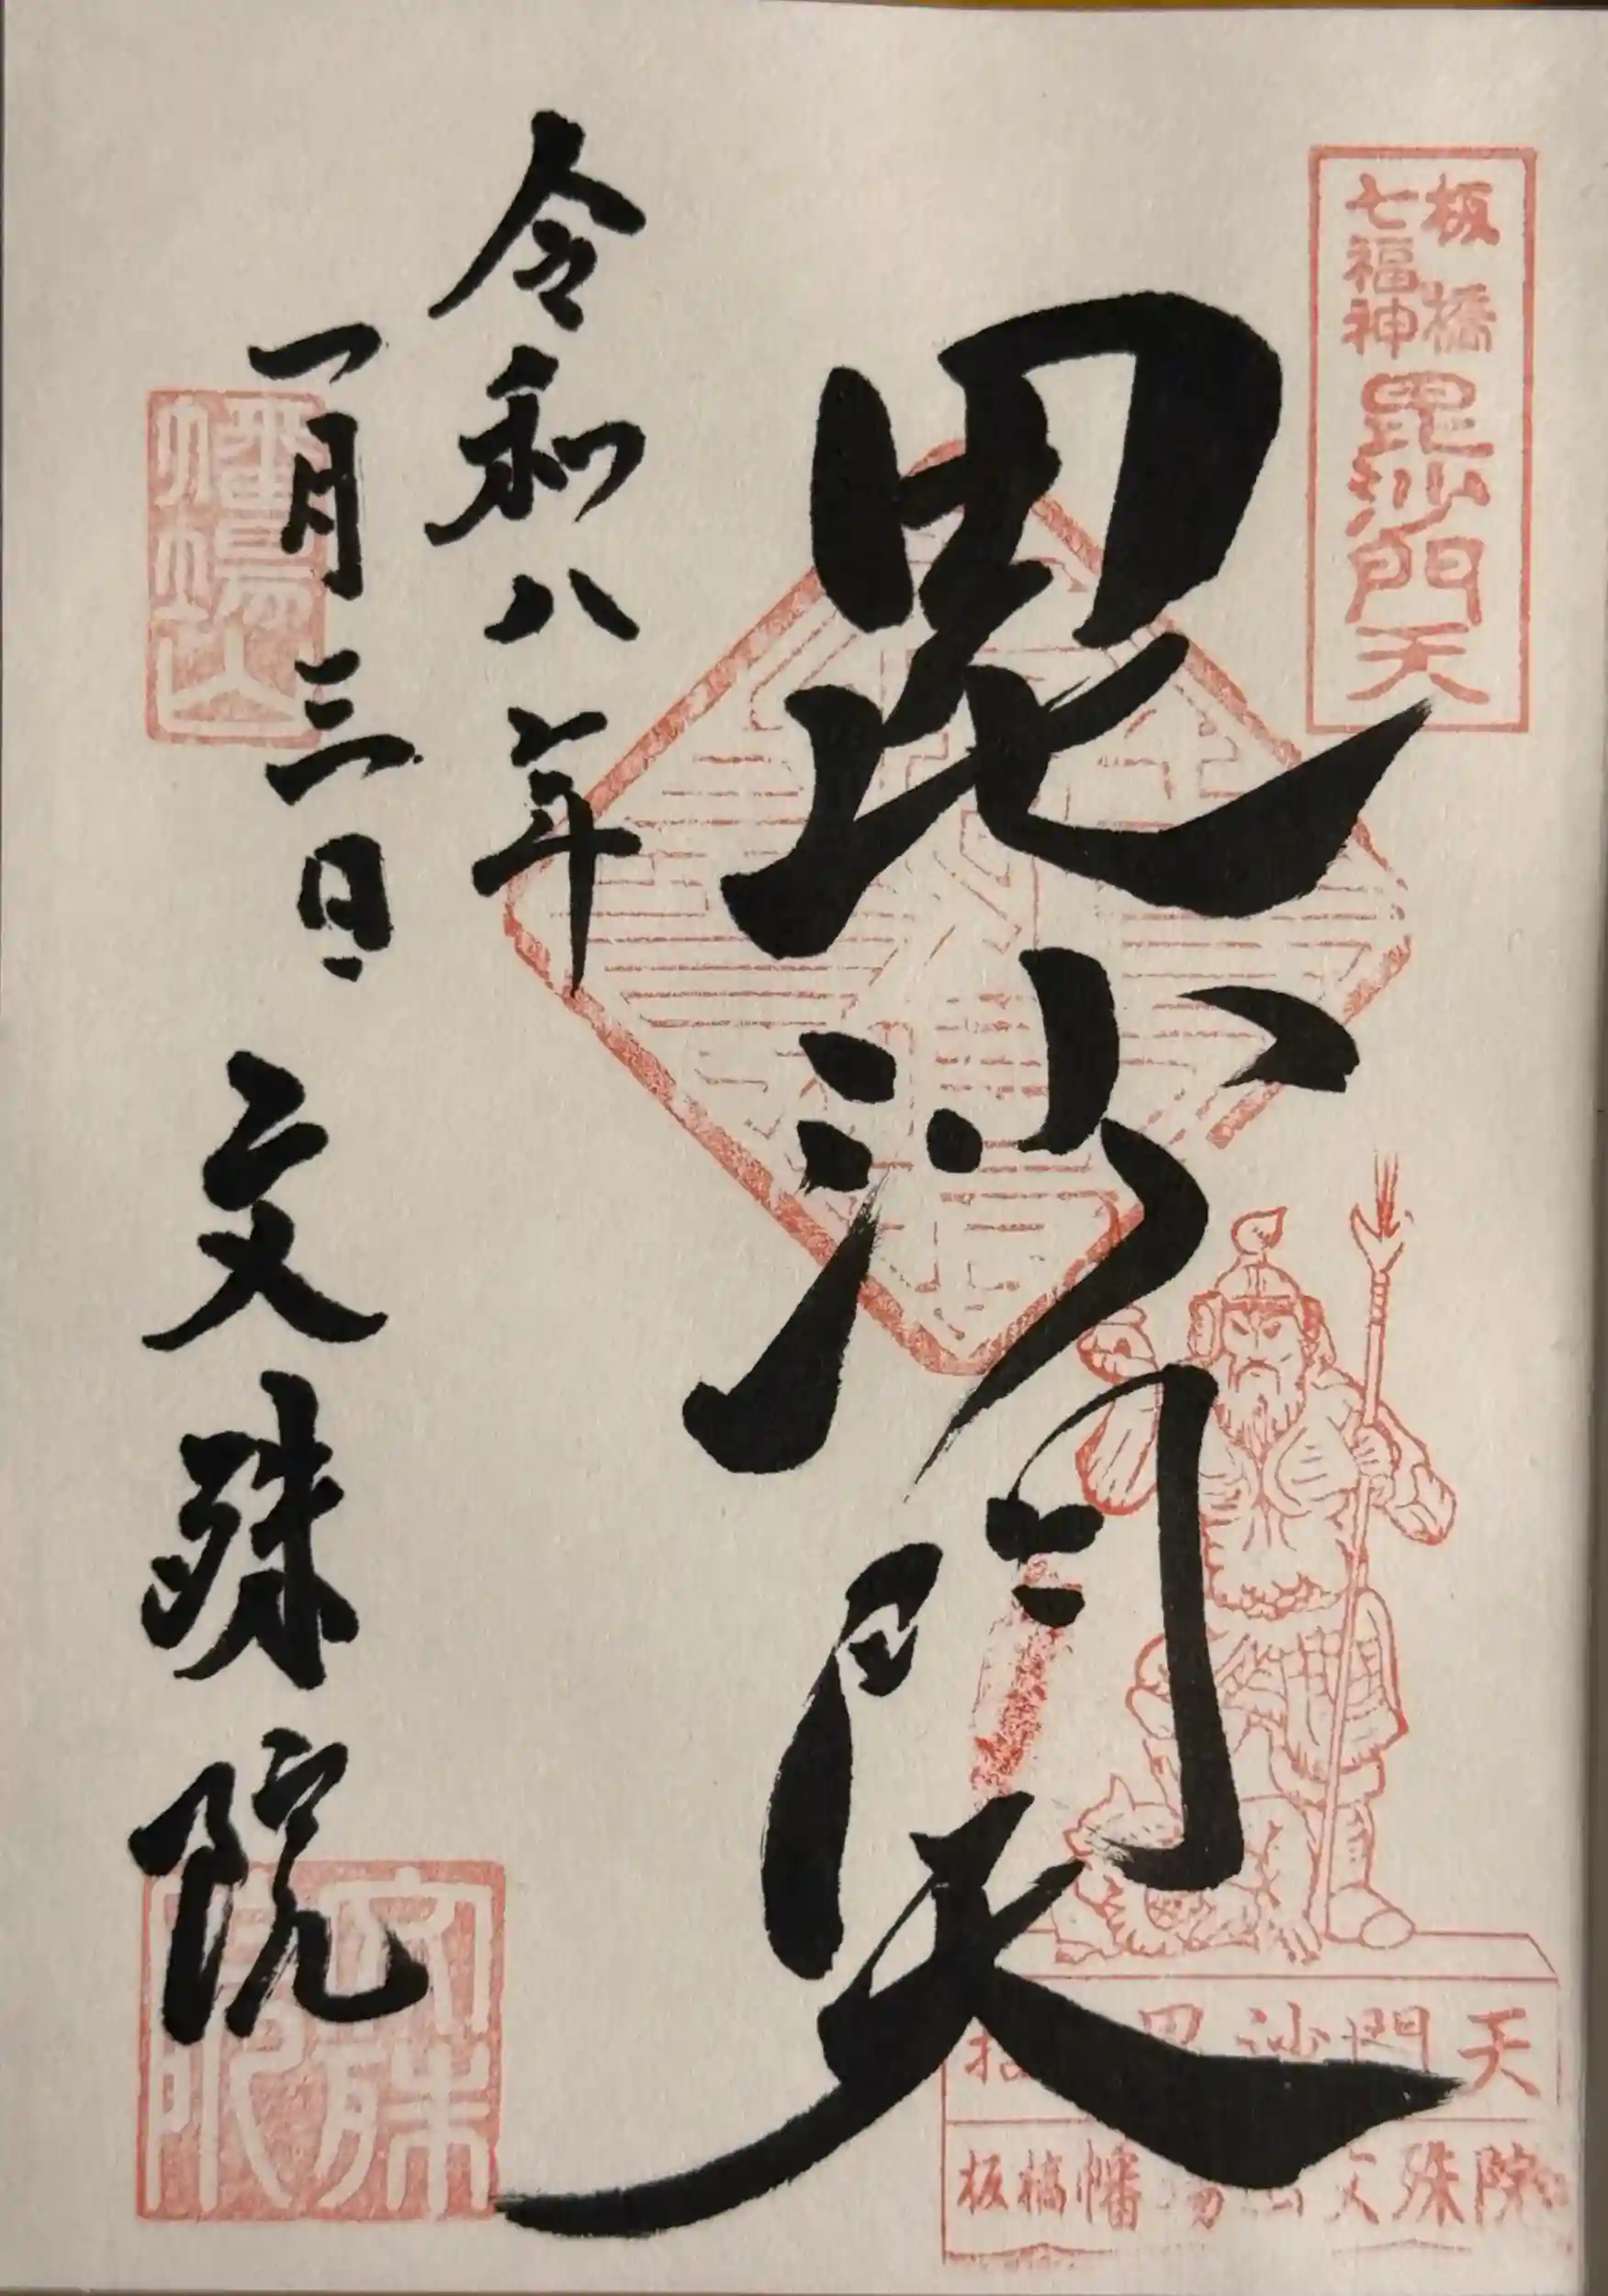 板橋
七福神
毘沙門天
毘沙門天
令和八年
一月三日
文殊院
幡場山
文殊院
毘沙門天
板橋幡場山文殊院